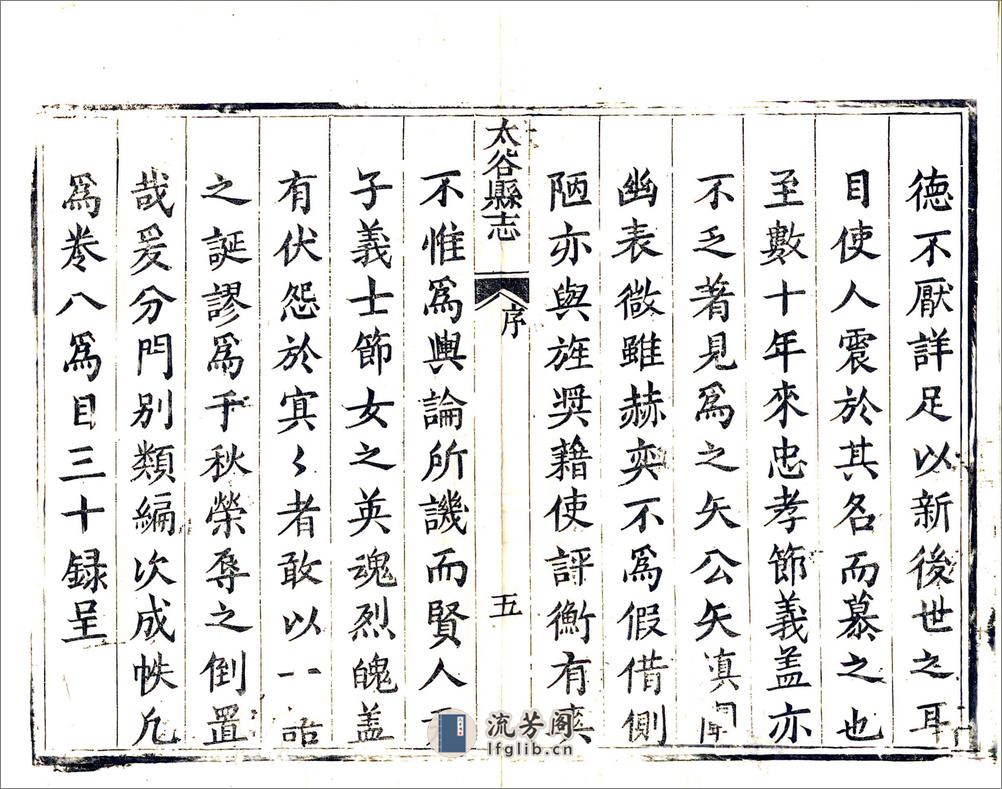 德不厭詳足以新後世之耳
目使人震於其名而慕之也
至數十年來忠孝節義盖亦
不乏著見為之矢公矢慎闡
幽表微雖赫奕不為假借側
陋亦與旌奨藉使評衡有
太谷縣志
序
五
不惟為輿論所譏而賢人
子義士節女之英魂烈魄盖
有伏怨於冥〻者敢以一
之誕謬為千秋榮辱之倒置
哉爰分門別類編次成帙凡
為卷八為目三十録呈
流芳阁
lfglib.cn